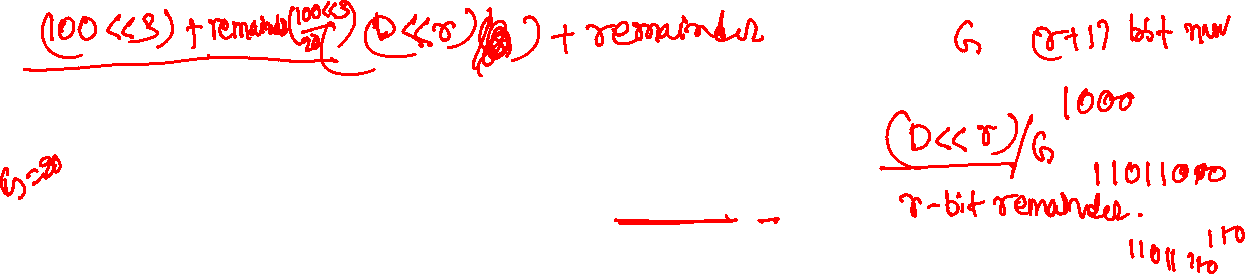 (100<<3) + remainder(100<<3/20) (D<<r) ) + remainder
G (r+1) bit num
1000
(D<<r)/G
G=20
11011000
r-bit remainder.
11011 110
110